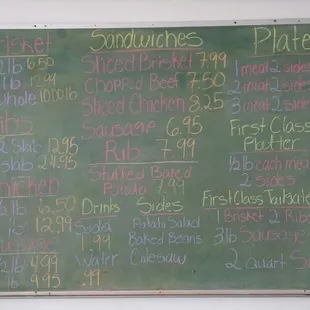 Brisket
lb 6.50
lb 12.99
whole 10.00 lb
Ribs
2 Slab 12.95
slab 24.95
Chicken
lb 6.50
12.99
Sausage
lb 4.99
lb 4.95
Sandwiches
Sliced Brisket 7.99
Chopped Beef 7.50
Sliced Chicken 8.25
Sausage 6.95
Rib 7.99
Stuffed Baked
Potato 7.99
Drinks
Soda
1.99
Water
.99
Sides
Potato Salad
Baked Beans
Coleslaw
Plate
1 meat 2 sides
2 meat 2 sides
3 meat 2 sides
First Class
Platter
1/2 lb each mea
2 sides
First Class Tailgate
1 Brisket 2 Ribs
3 lb Sausage
2 quart